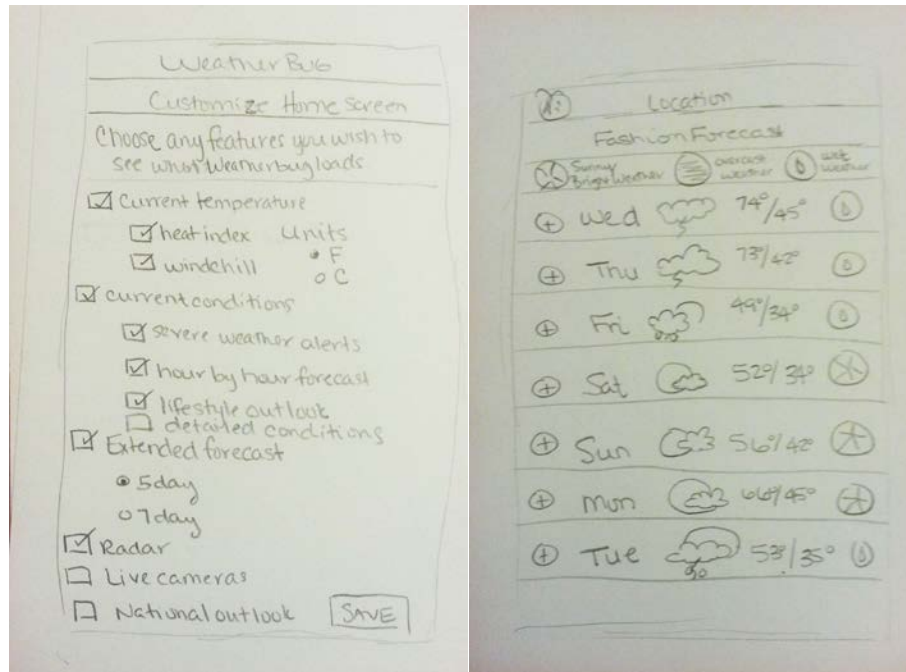 WeatherBug
Customize Home Screen
Choose any features you wish to
see when Weatherbug loads
Current temperature
heat index Units
windchill F
C
Current conditions
severe weather alerts
hour by hour forecast
lifestyle outlook
detailed conditions
Extended forecast
5day
7day
Radar
Live cameras
National outlook SAVE
Location
Fashion Forecast
Sunny overcast wet
Bright Weather weather weather
+ Wed 74°/45°
+ Thu 73°/42°
+ Fri 49°/34°
+ Sat 52°/34°
+ Sun 56°/42°
+ Mon 66°/45°
+ Tue 53°/35°